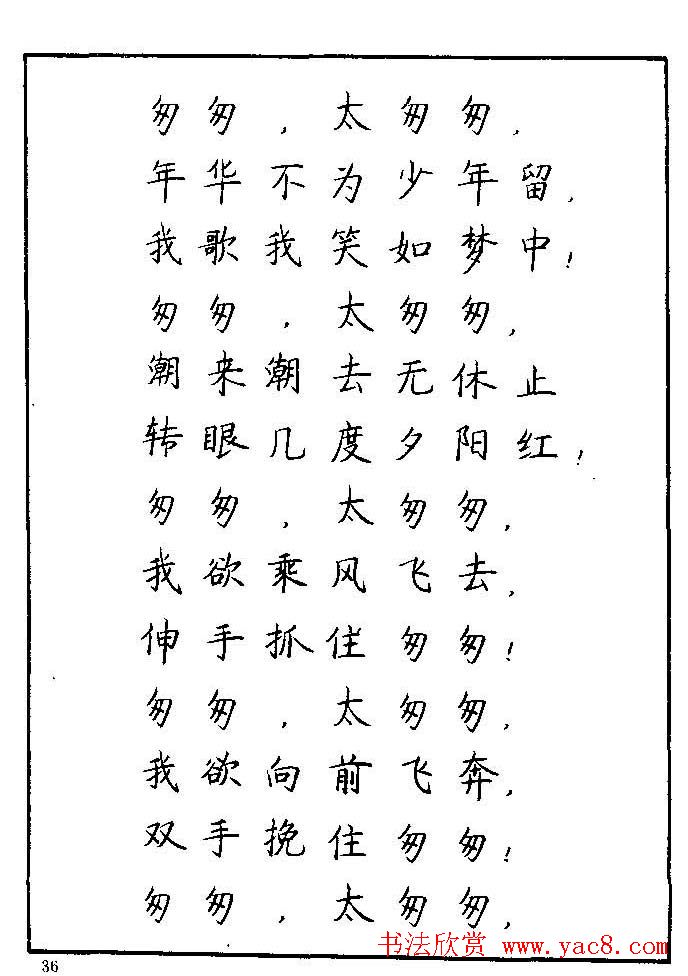 匆匆，太匆匆，
年华不为少年留，
我歌我笑如梦中！
匆匆，太匆匆，
潮来潮去无休止
转眼几度夕阳红！
匆匆，太匆匆，
我欲乘风飞去，
伸手抓住匆匆！
匆匆，太匆匆，
我欲向前飞奔，
双手挽住匆匆！
匆匆，太匆匆，
书法欣赏 www.yac8.com
36